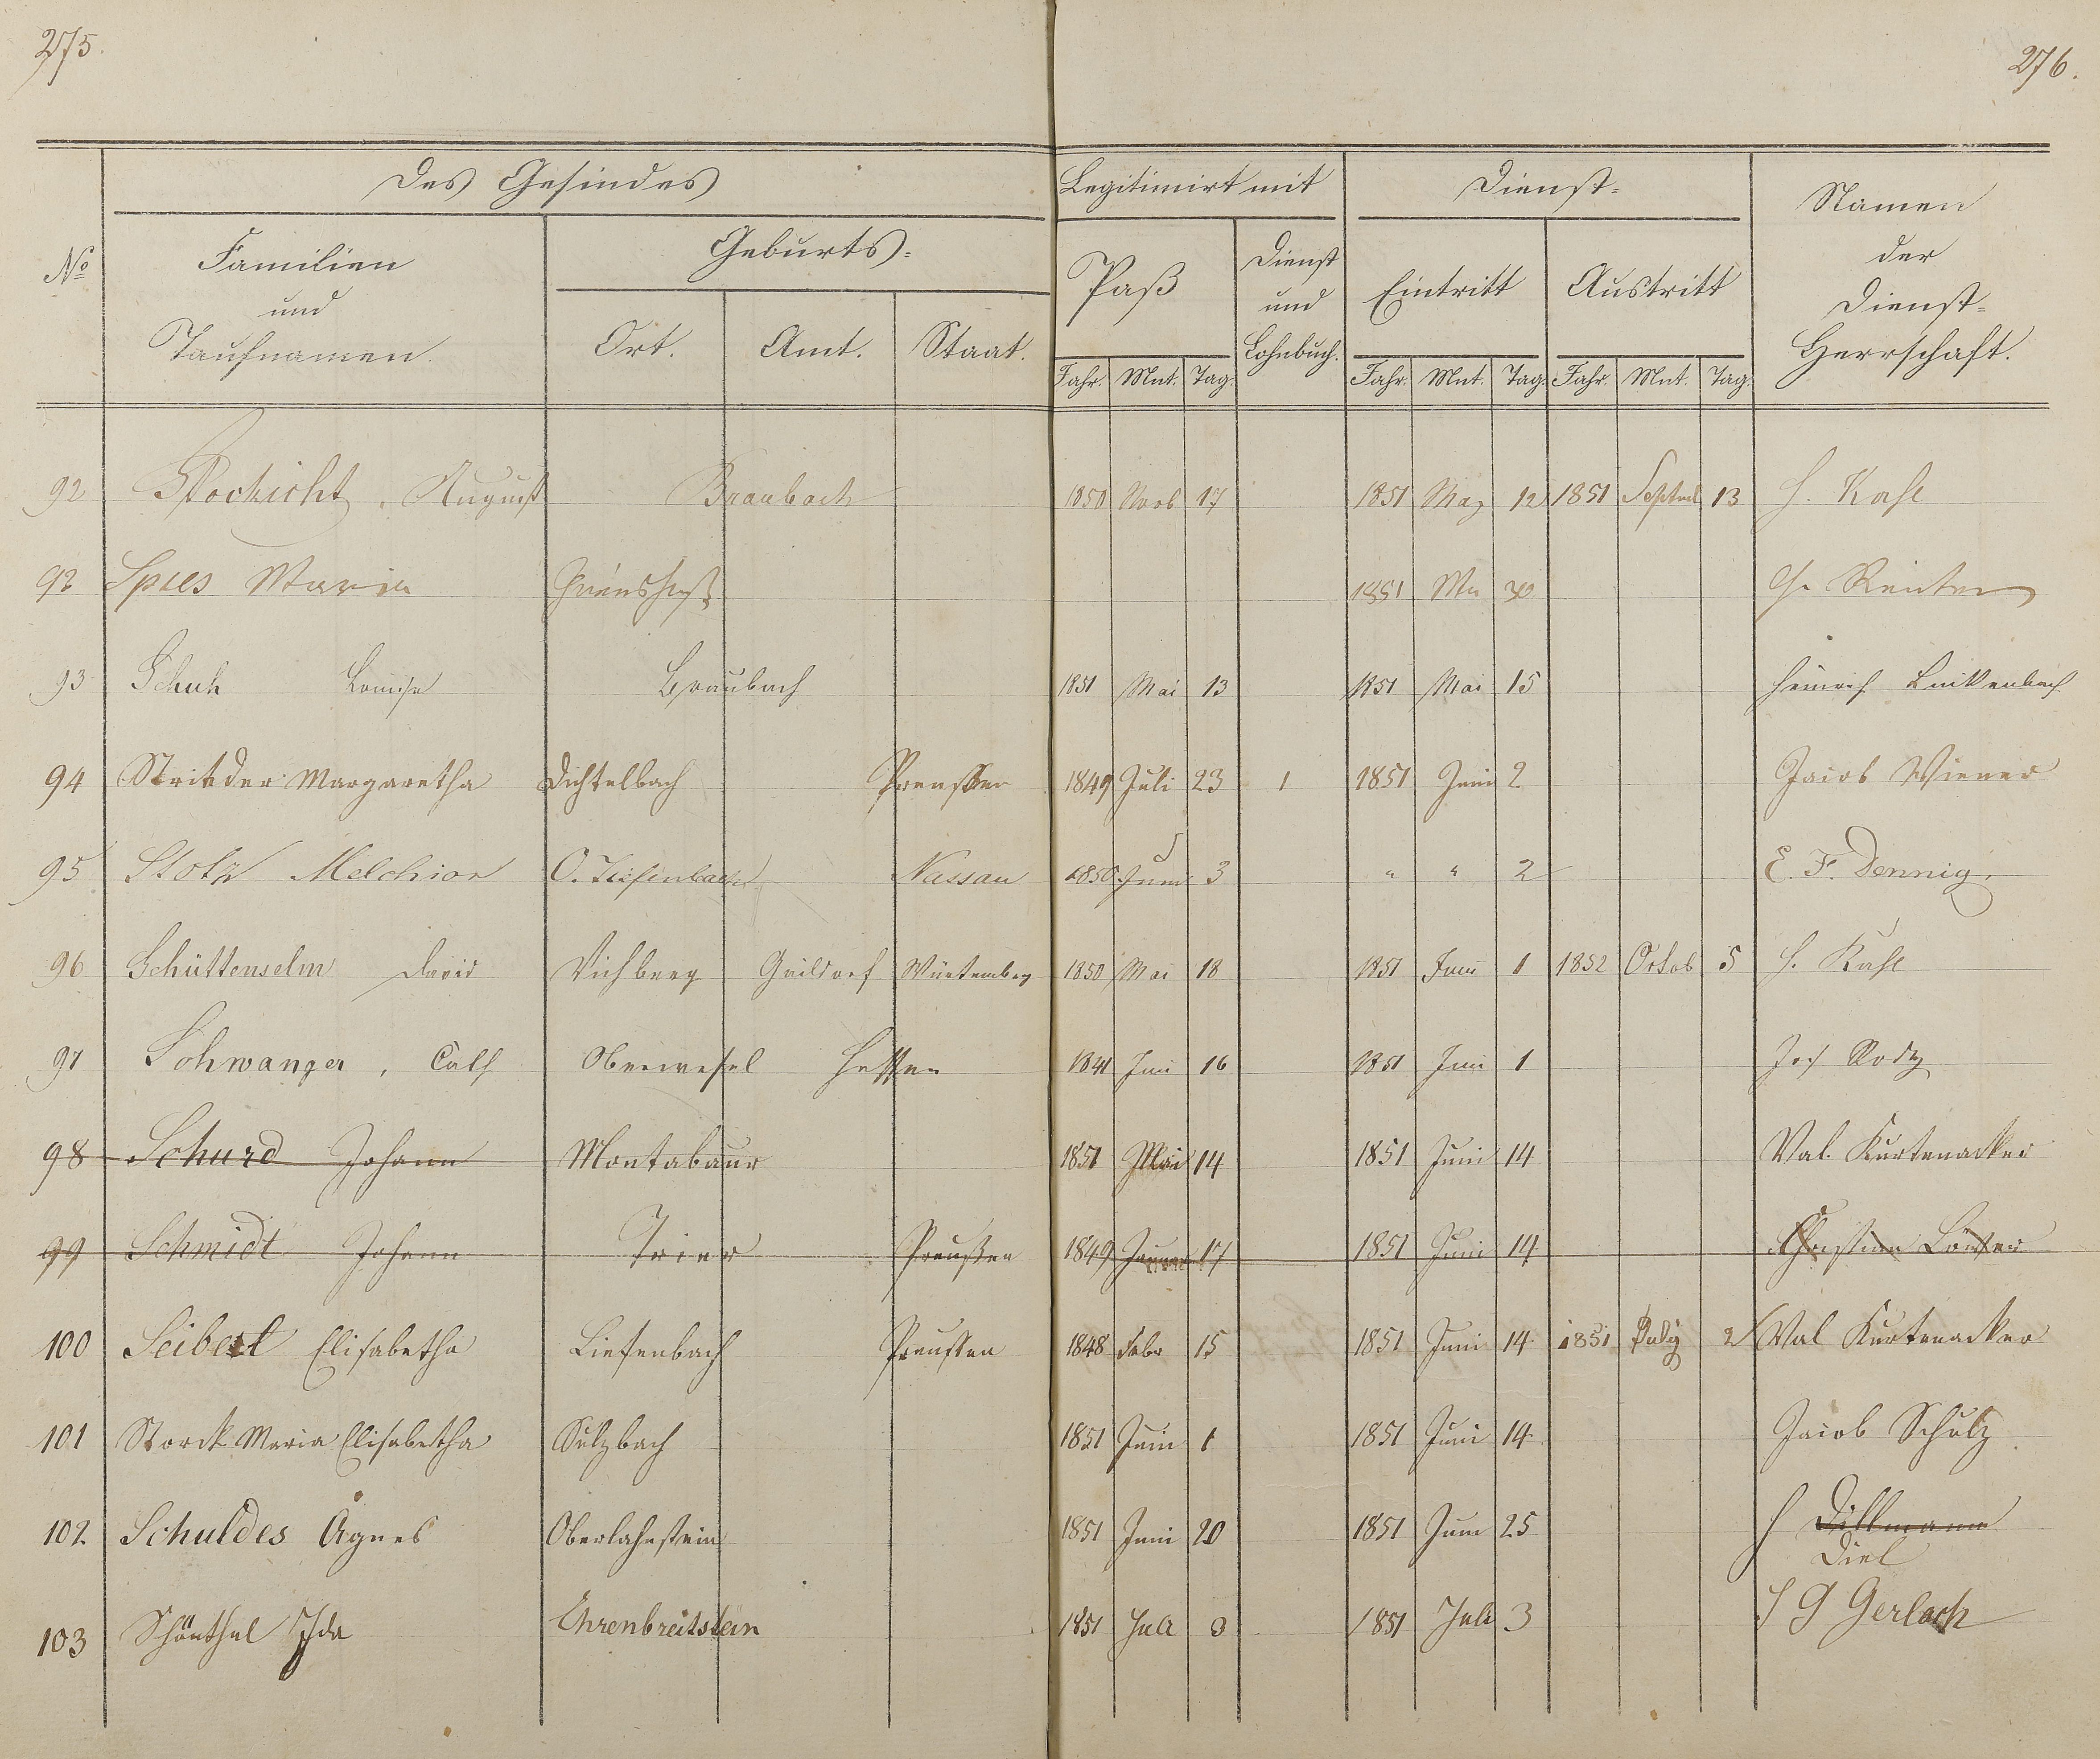 275.
276.
Des Gesindes
Legitimirt mit
Dienst-
Namen
der
Dienst-
Herrschaft.
No
Familien
und
Taufnamen.
Geburts-
Ort.
Amt.
Staat.
Paß
Dienst
und
Lohnbuch.
Eintritt
Austritt
Jahr. Mnt. Tag. Jahr. Mnt. Tag. Jahr. Mnt. Tag.
92 August Braubach 1850 Novb 17 1851 May 12 1851 Septemb 13 H. Kahl
92 Spies Maria 1851 Mai 30 Reuter
93 Schuh Louise Braubach 1851 Mai 13 1851 Mai 15 Heinrich
94 Stritder Margaretha Dichtelbach Preussen 1849 Juli 23 1 1851 Juni 2 Jacob Wiener
95 Stotz Melchior O. Tiefenbach Nassau 1850 Juni 3 " " 2 E. F. Dennig.
96 Schüttenselm David Vichberg Gaildorf Würtemberg 1850 Mai 18 1851 Juni 1 1852 Octob 5 H. Kahl
97 Schwanger, Cath Oberwesel Hessen 1841 Juni 16 1851 Juni 1 Jos
98 Schurd Johann Montabaur 1851 Mai 14 1851 Juni 14 Val. Kurtenacker
99 Schmidt Johann Trier Preußen 1849 Januar 17 1851 Juni 14 Christian
100 Seibert Elisabetha Liefenbach Preussen 1848 Febr 15 1851 Juni 14 1851 July 2 Val Kurtenacker
101 Storck Maria Elisabetha Sulzbach 1851 Juni 1 1851 Juni 14 Jacob Schulz
102 Schuldes Agnes Oberlahnstein 1851 Juni 20 1851 Juni 25 H Dillmann
Diel
103 Schönthal Ida Ehrenbreitstein 1851 Juli 3 1851 Juli 3 J G Gerlach